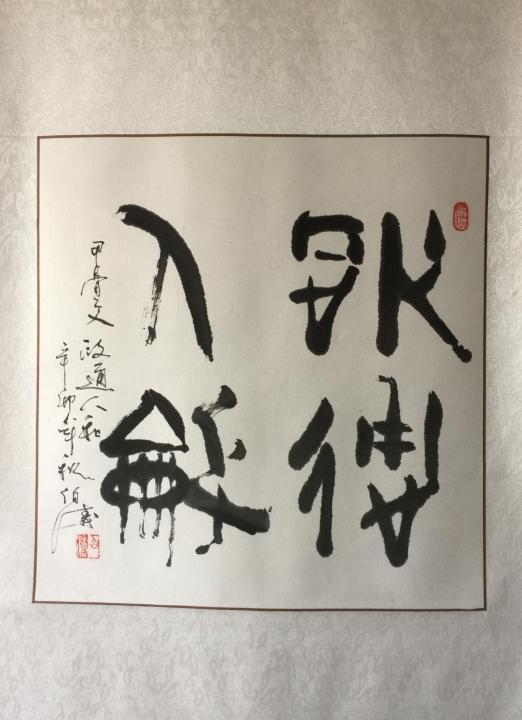 政通
人龢
甲骨文 政通人和
辛卯年秋 伯義